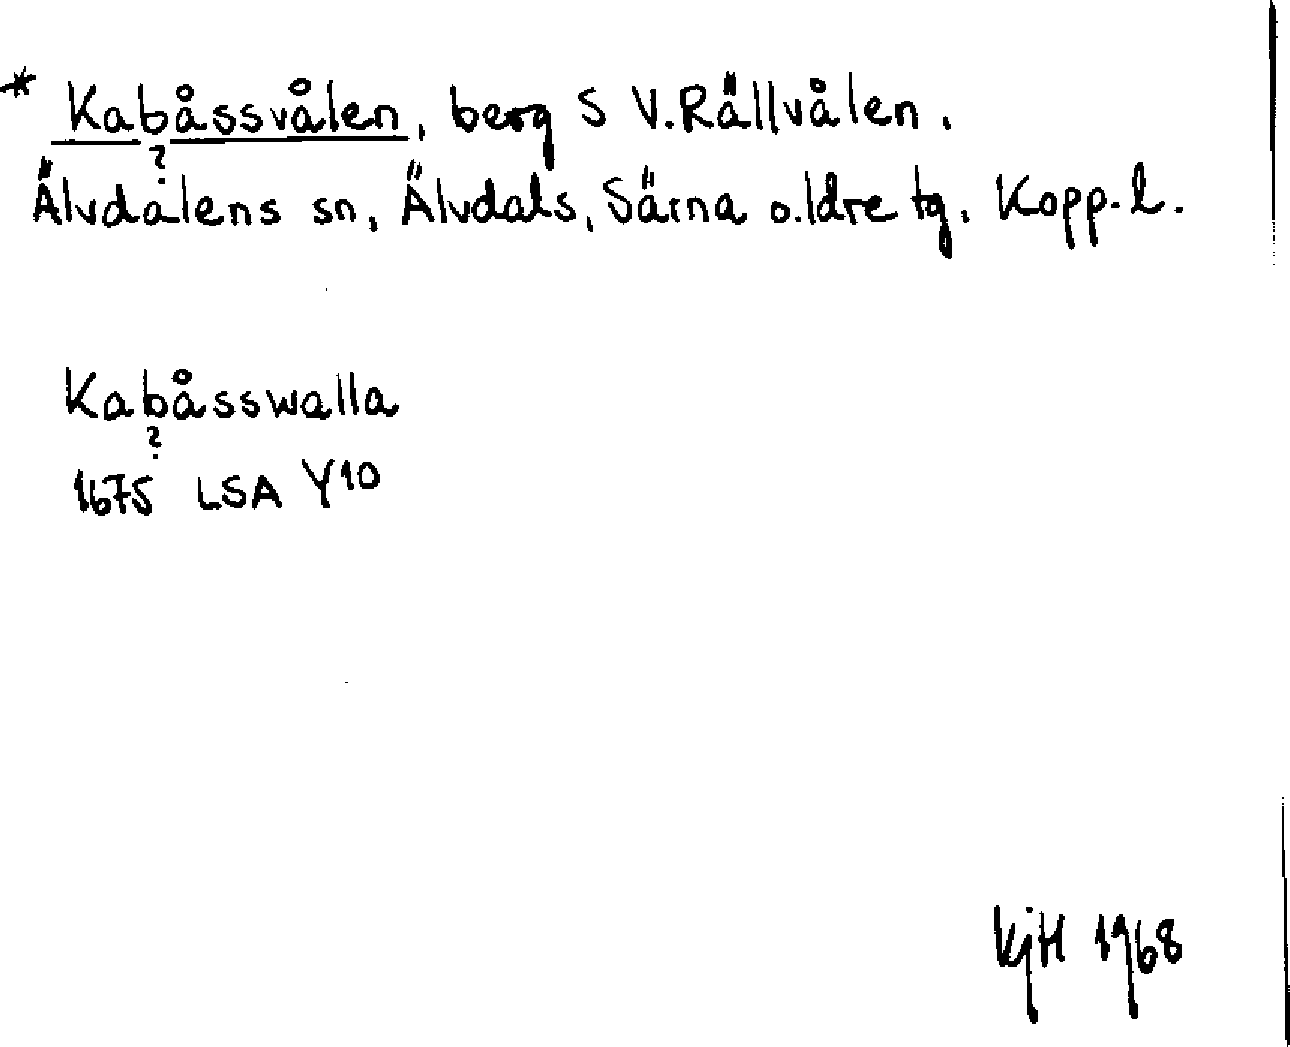 * Kabåssvålen, berg S V.Rällvålen.
?
Älvdalens sn, Älvdals, Särna o. Idre tg, Kopp. l.
Kabåsswalla
?
1675 LSA Y10
KjH 1968